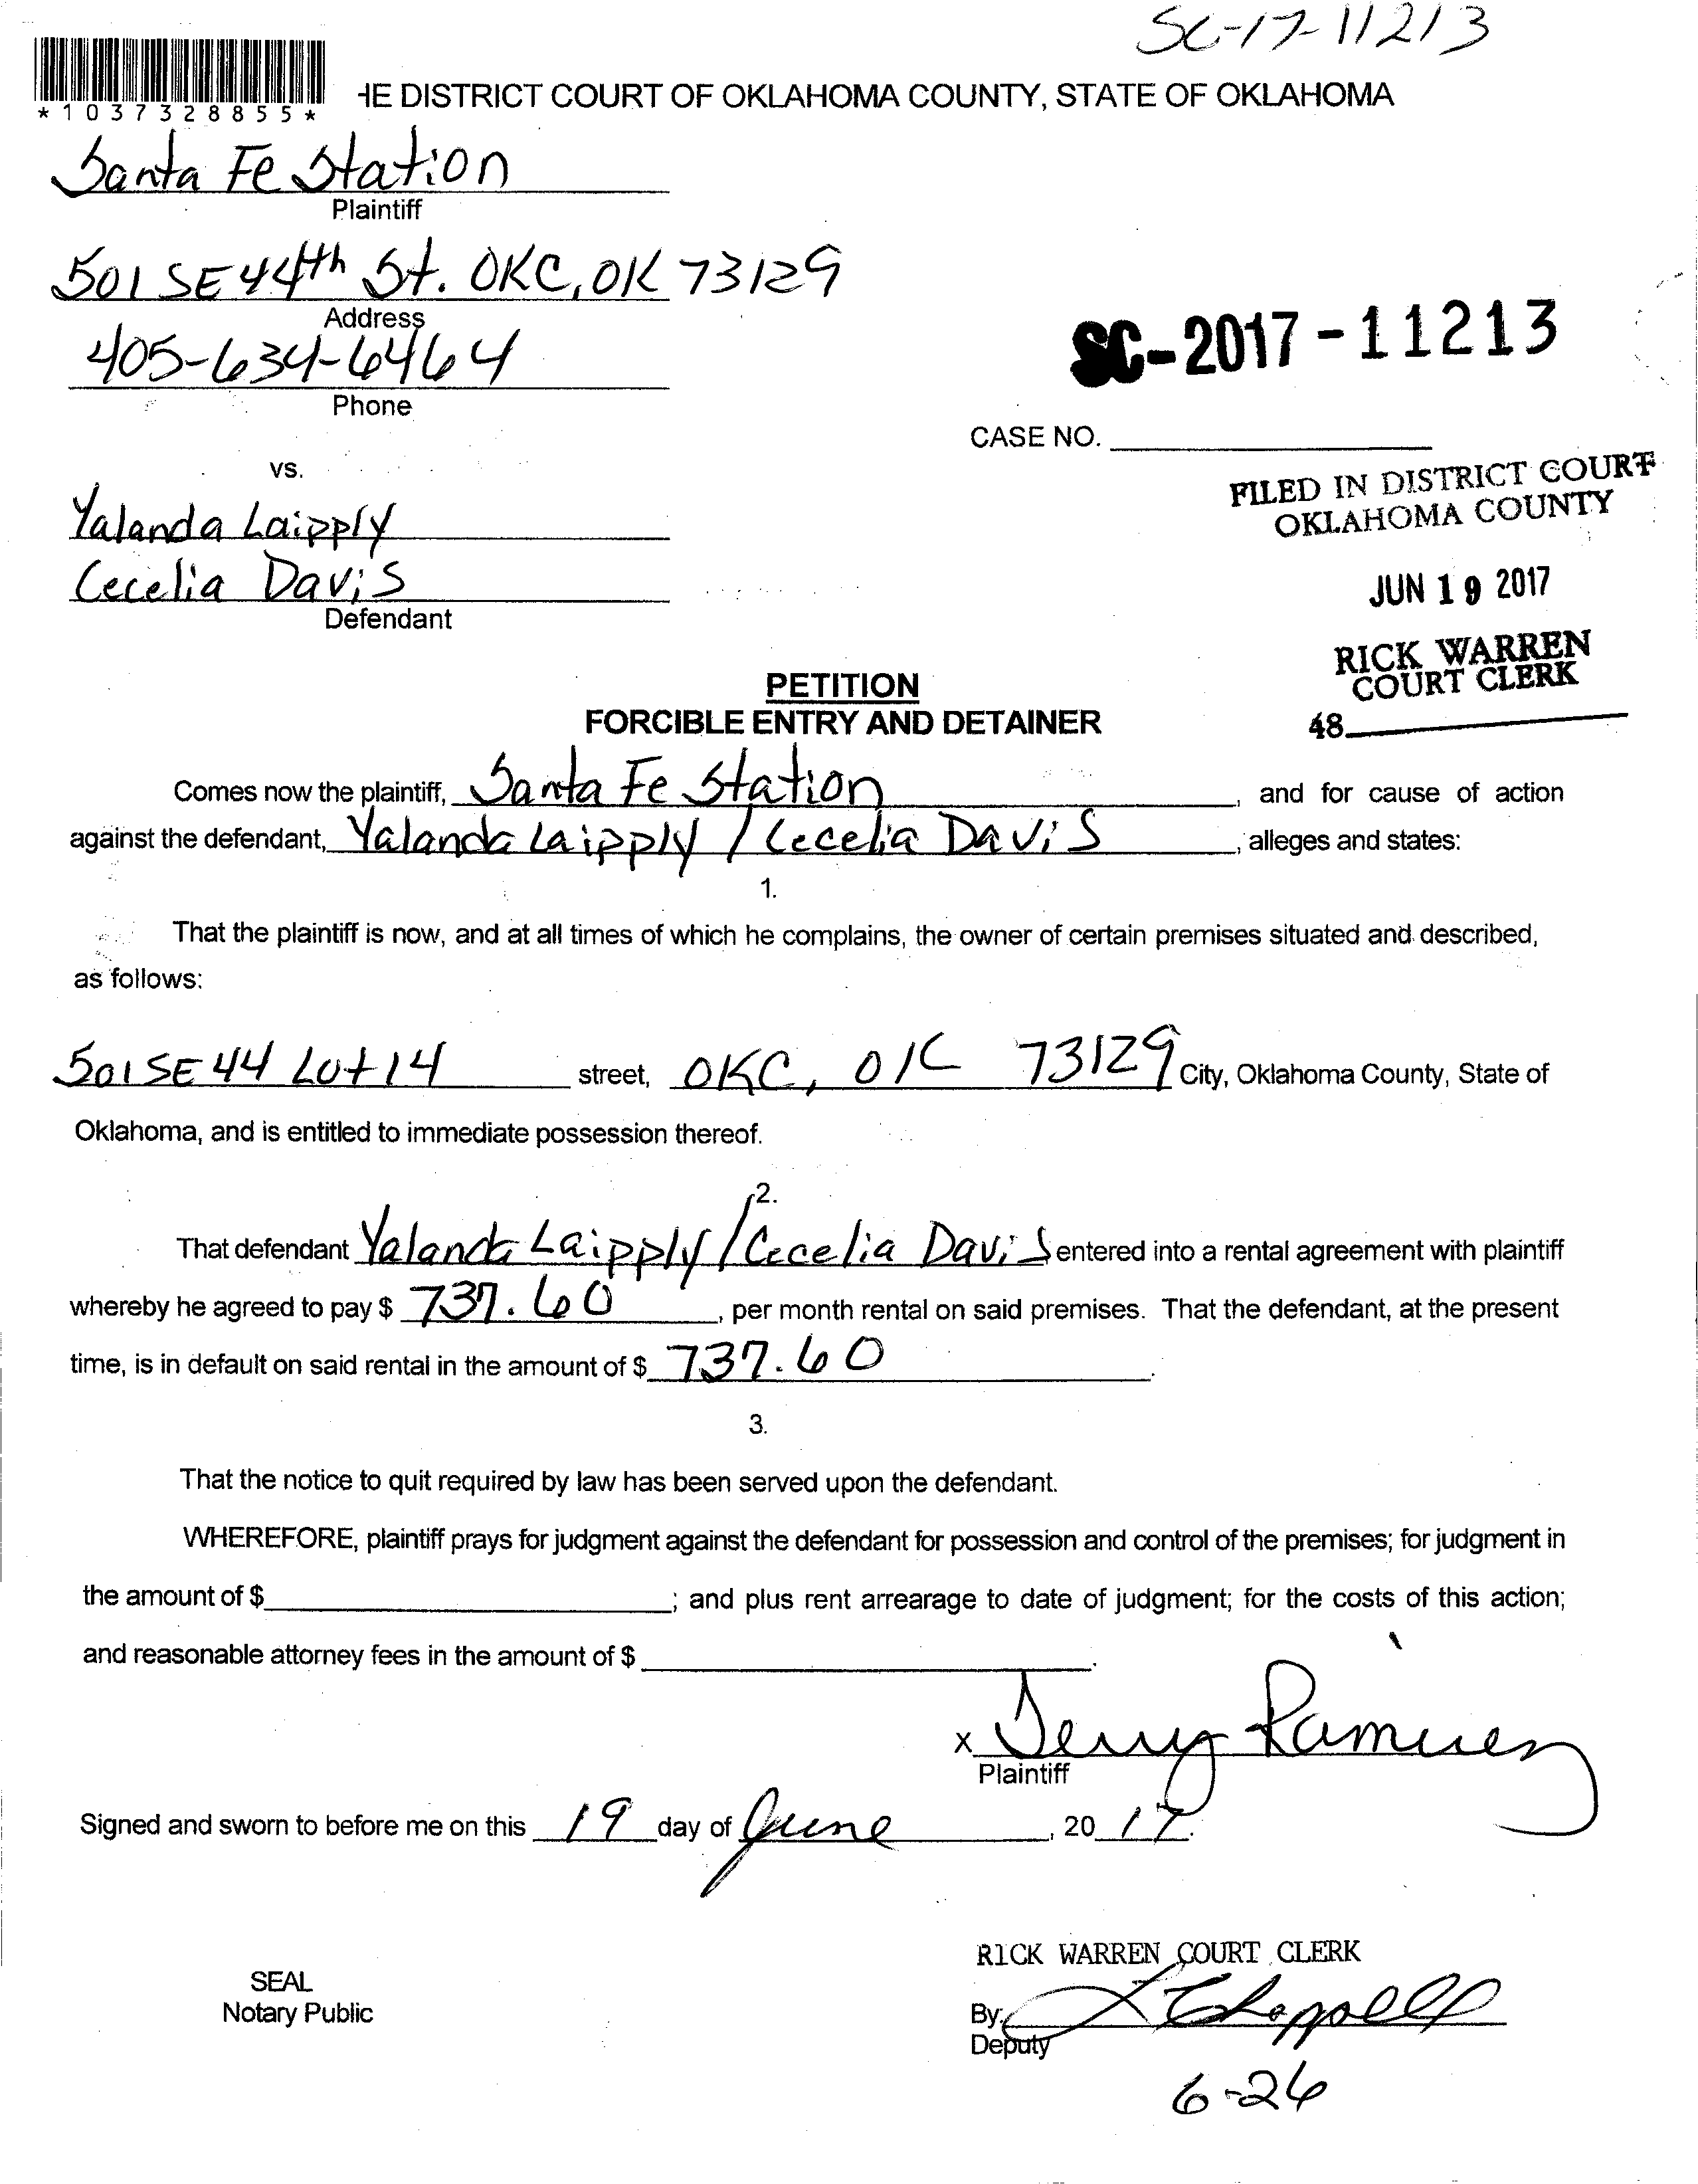 SC-17-11213
*1037328855*
HE DISTRICT COURT OF OKLAHOMA COUNTY, STATE OF OKLAHOMA
Santa Fe Station
Plaintiff
501 SE 44th St. OKC, OK 73129
Address
405-634-6464
Phone
SC-2017-11213
CASE NO.
vs.
FILED IN DISTRICT COURT
OKLAHOMA COUNTY
Yalanda Laipply
Cecelia Davis
Defendant
JUN 19 2017
RICK WARREN
COURT CLERK
48
PETITION
FORCIBLE ENTRY AND DETAINER
Comes now the plaintiff, Santa Fe Station, and for cause of action
against the defendant, Yalanda Laipply / Cecelia Davis, alleges and states:
1.
That the plaintiff is now, and at all times of which he complains, the owner of certain premises situated and described,
as follows:
501 SE 44 Lot 14 street, OKC, OK 73129 City, Oklahoma County, State of
Oklahoma, and is entitled to immediate possession thereof.
2.
That defendant Yalanda Laipply / Cecelia Davis entered into a rental agreement with plaintiff
whereby he agreed to pay $ 737.60, per month rental on said premises. That the defendant, at the present
time, is in default on said rental in the amount of $ 737.60.
3.
That the notice to quit required by law has been served upon the defendant.
WHEREFORE, plaintiff prays for judgment against the defendant for possession and control of the premises; for judgment in
the amount of $ ; and plus rent arrearage to date of judgment; for the costs of this action;
and reasonable attorney fees in the amount of $ .
x Jerry Ramirez
Plaintiff
Signed and sworn to before me on this 19 day of June, 2017.
RICK WARREN COURT CLERK
SEAL
Notary Public
By: Chappell
Deputy
6-26